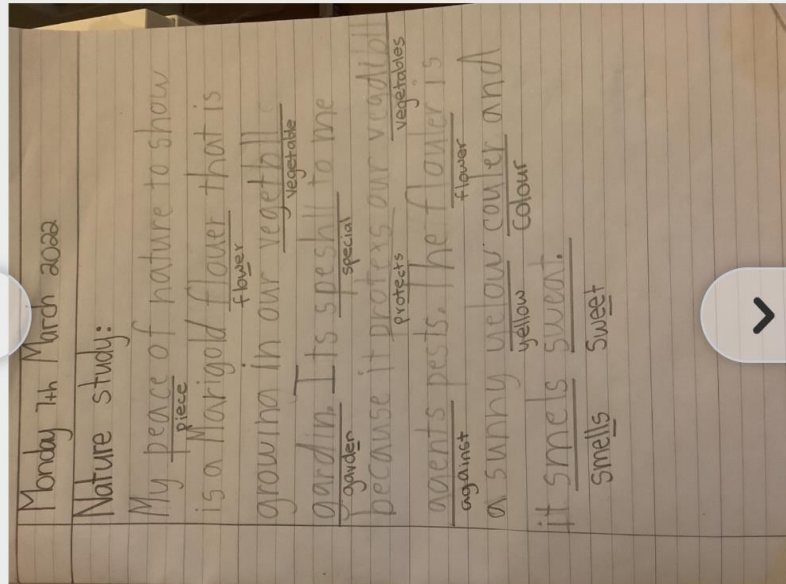 Monday 7th March 2022
Nature study:
My peace of nature to show
piece
is a Marigold flouer that is
flower
growing in our vegetbll
vegetable
gardin. Its speshll to me
garden special
because it protexs our vegdibll
protects vegetables
agents pests. The flouler is
against flower
a sunny yelow couler and
yellow colour
it smels sweat.
smells sweet